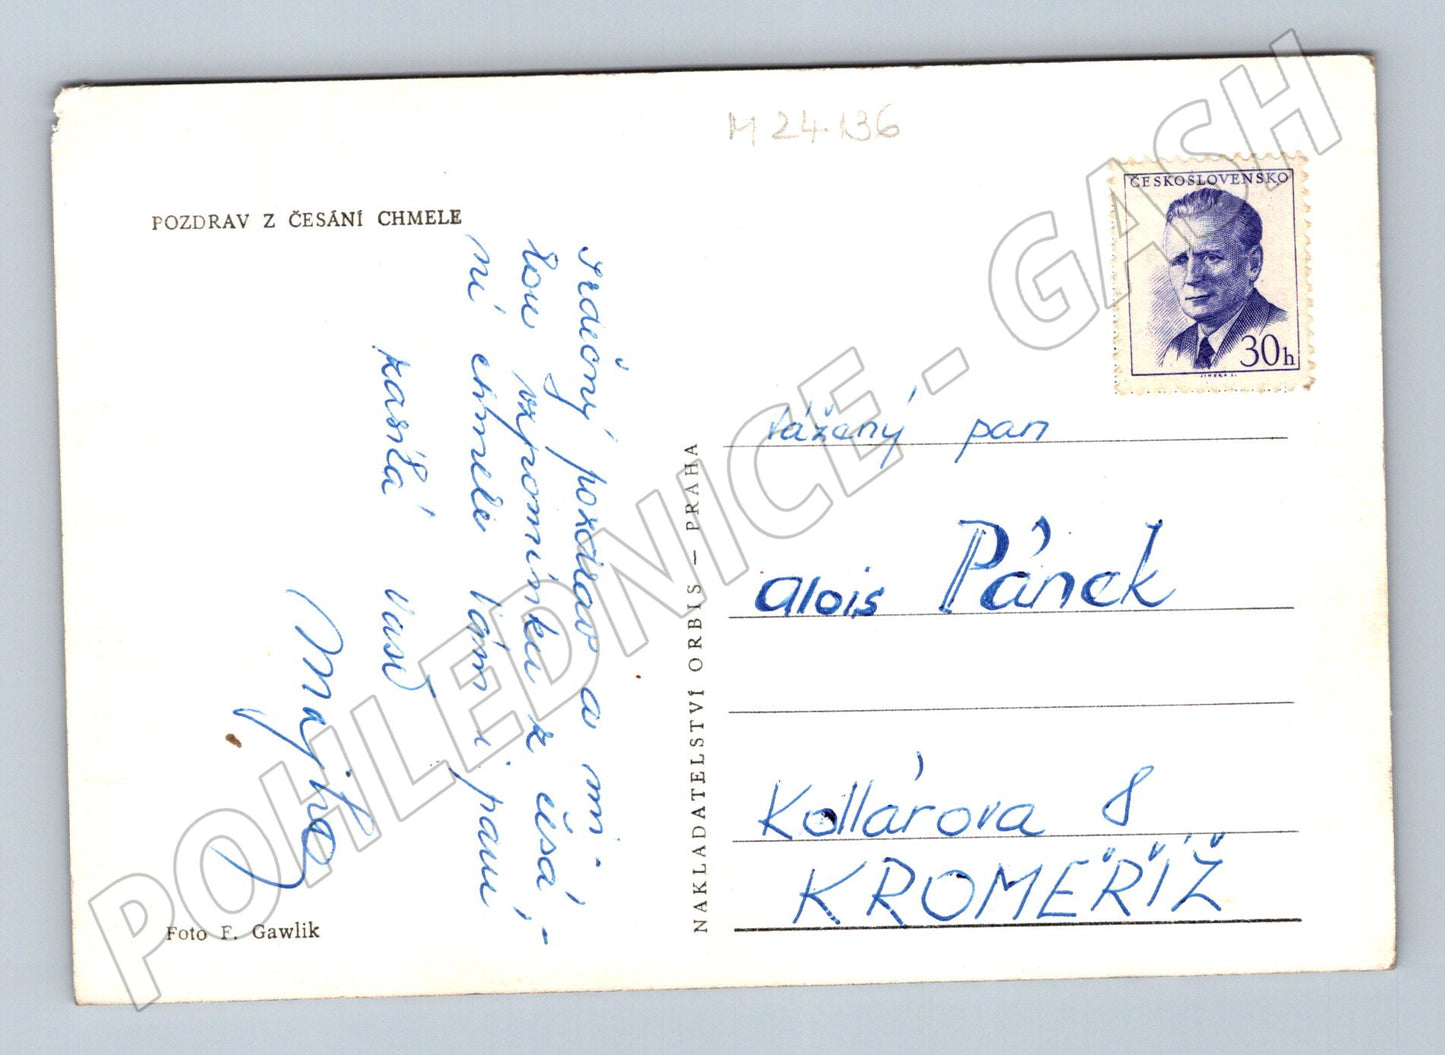 M 24 136
POZDRAV Z ČESÁNÍ CHMELE
Srdečný pozdrav a mi-
lou vzpomínku z česá-
ní chmele Vám i paní
zasílá Vaše
Foto F. Gawlik
NAKLADATELSTVÍ ORBIS — PRAHA
ČESKOSLOVENSKO
30h
Vážený pan
Alois Pánek
Kollárova 8
KROMĚŘÍŽ
POHLEDNICE - GASH